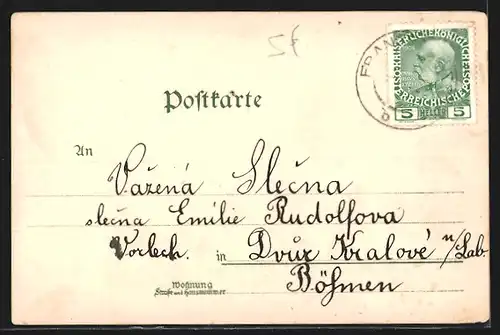 5f
KAISERLICHE KÖNIGLICHE
ÖSTERREICHISCHE POST
5 HELLER 5
FRAN
b
Postkarte
An
Vážená Slečna
slečna Emilie Rudolfova
in Dvůr Kralové n/Lab.
Böhmen
Wohnung
Straße und Hausnummer